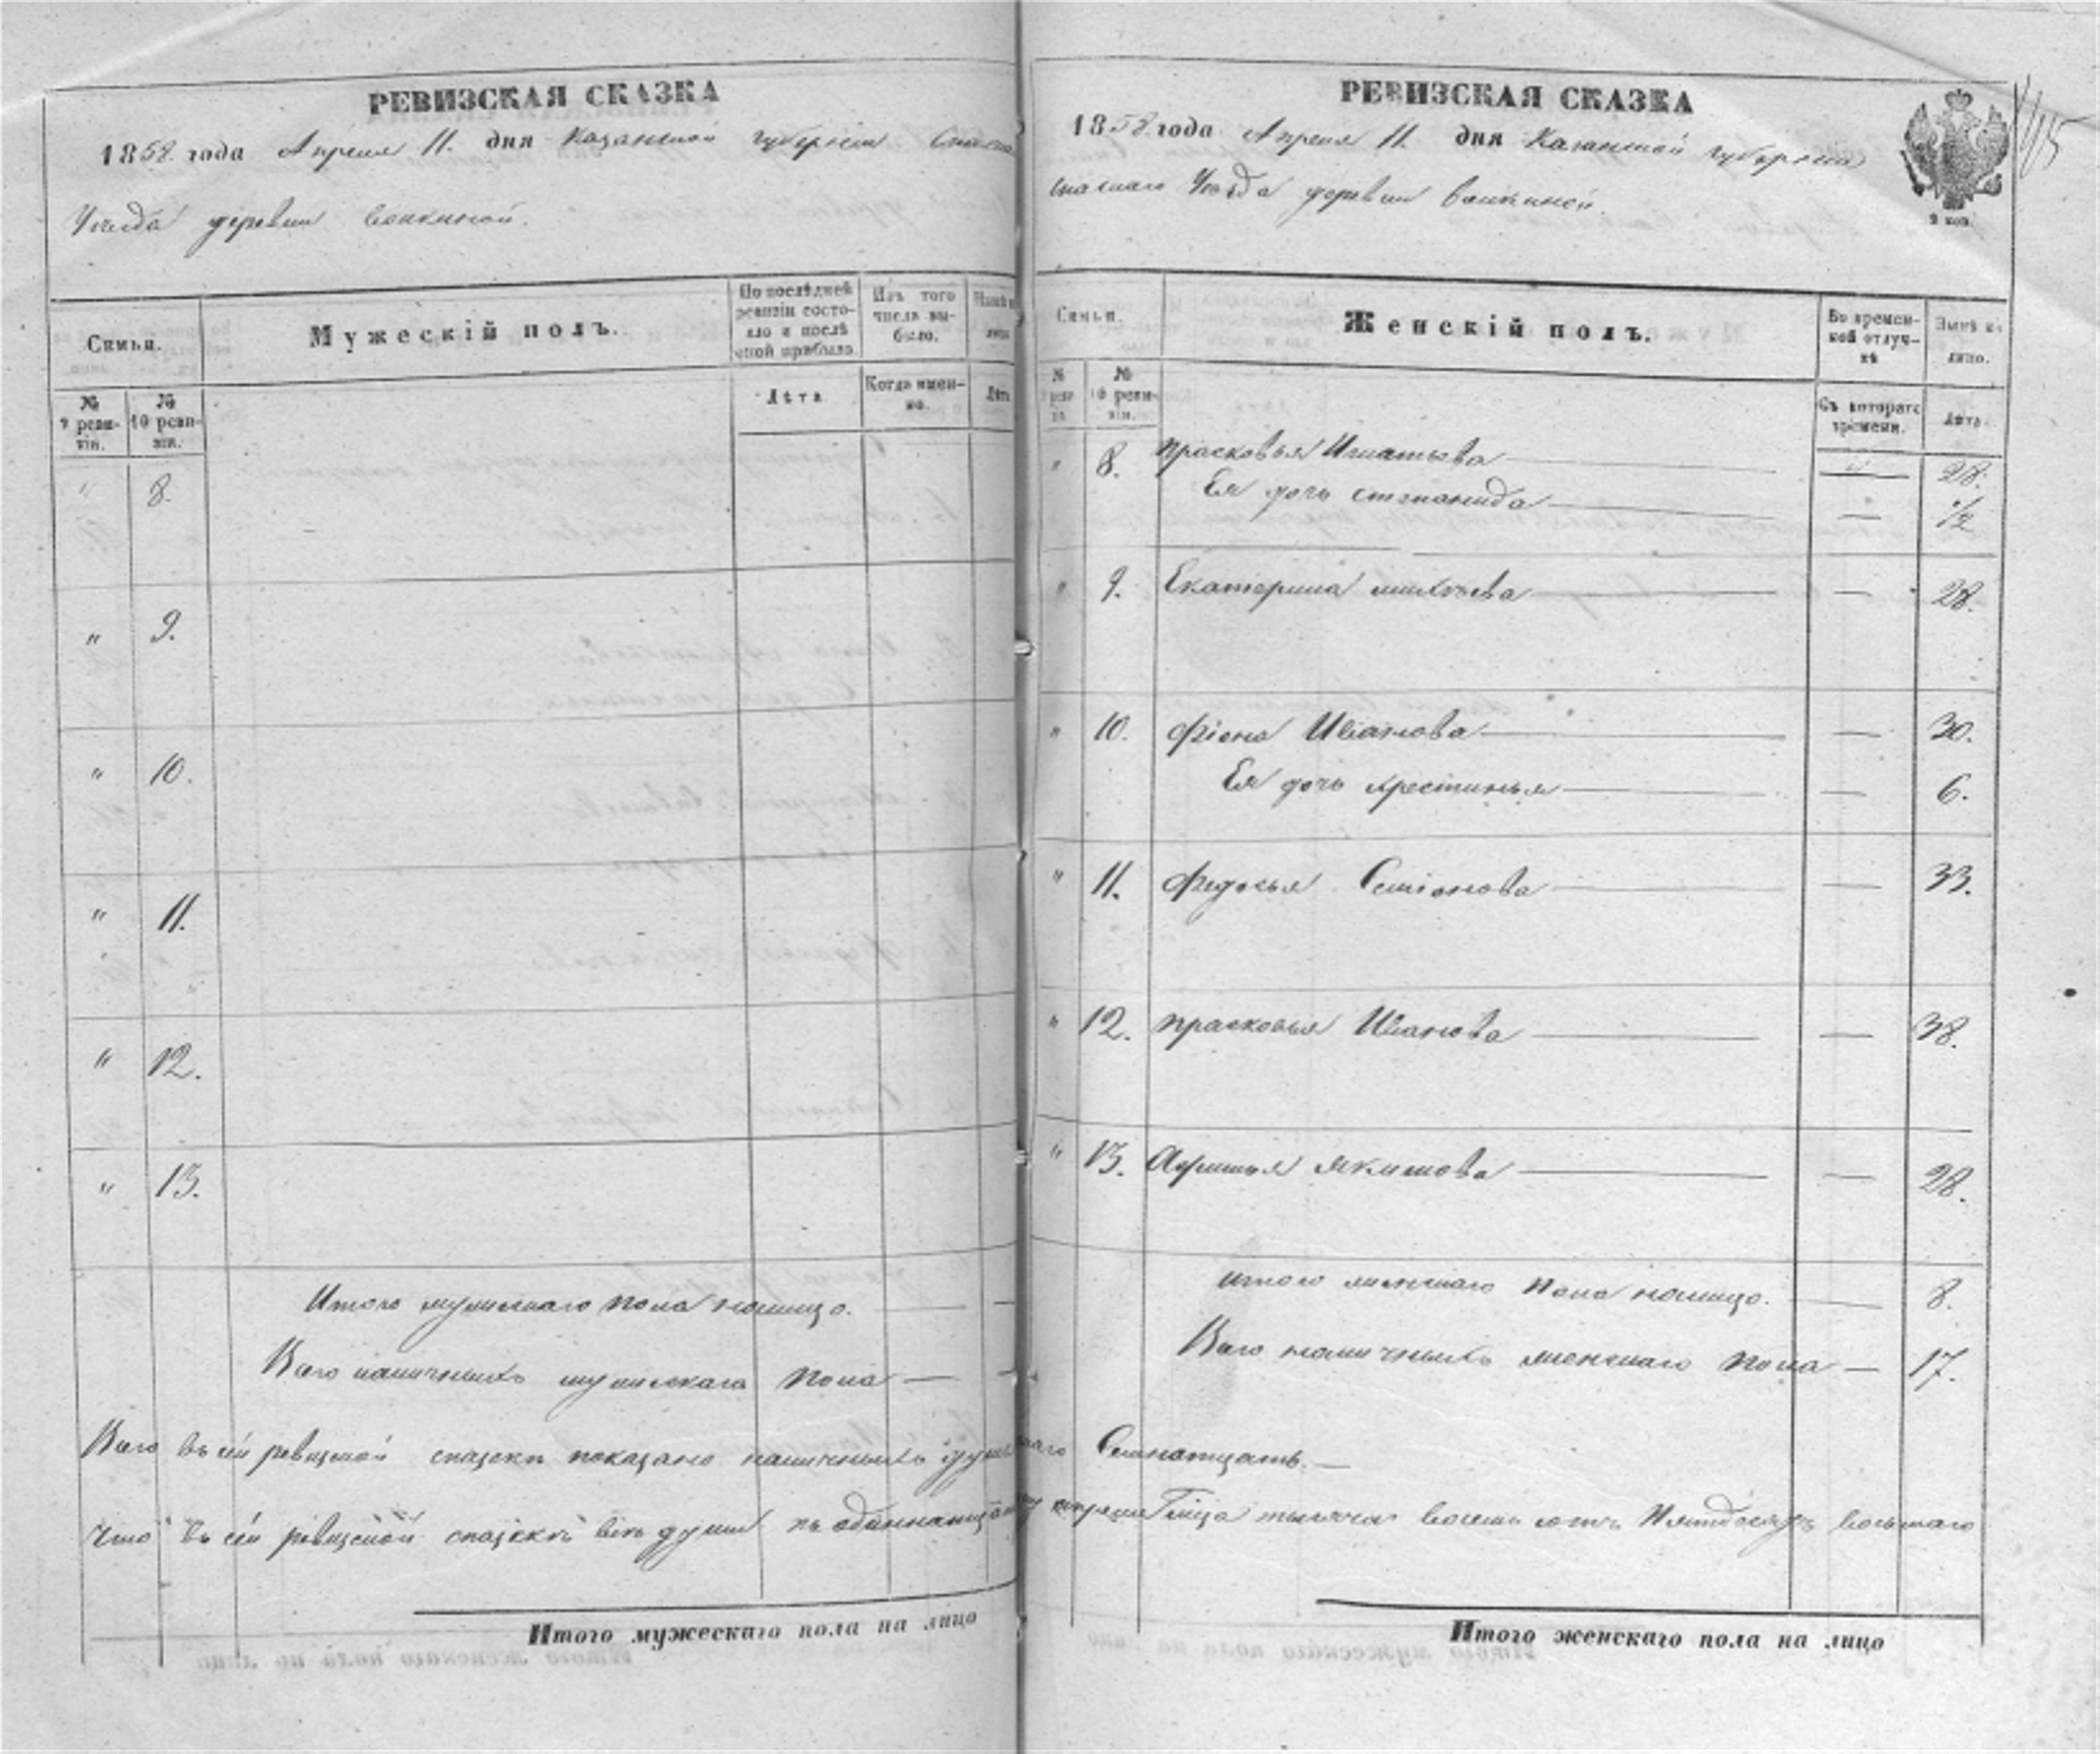 РЕВИЗСКАЯ СКАЗКА
1858 года Апреля 11. дня Казанской губернiи Спаска
Уезда деревни
Семьи.
Мужескiй полъ.
По послѣдней ревизiи состояло и послѣ оной прибыло.
Изъ того числа выбыло.
№ 9 ревизiи.
№ 10 ревизiи.
Лѣта
Когда именно.
Лѣта
" 8.
" 9.
" 10.
" 11.
" 12.
" 13.
Итого мужескаго пола налицо. —
Всего наличныхъ мужескаго пола —
Всего въ сей ревизской сказкѣ показано наличныхъ
Что въ сей ревизской сказкѣ всѣ души къ
Итого мужескаго пола на лицо
РЕВИЗСКАЯ СКАЗКА
1858 года Апреля 11. дня Казанской губернiи
Спаскаго Уѣзда деревни
2 коп.
Семьи.
Женскiй полъ.
Во временной отлучкѣ
Нынѣ на лицо.
№ 9 ревизiи.
№ 10 ревизiи.
Съ котораго времени.
Лѣта.
" 8. Прасковья Игнатьева — — 28.
Ея дочь Степанида — — 1/2
" 9. Екатерина — — 28.
" 10. Фiона Иванова — — 30.
Ея дочь Хрестинья — — 6.
" 11. Федосья Семiонова — — 33.
" 12. Прасковья Иванова — — 38.
" 13. Якимова — — 28.
Итого женскаго пола налицо. — 8.
Всего наличныхъ женскаго пола — 17.
Семнатцать. —
тысяча восемь сотъ Пятдесятъ восьмаго
Итого женскаго пола на лицо